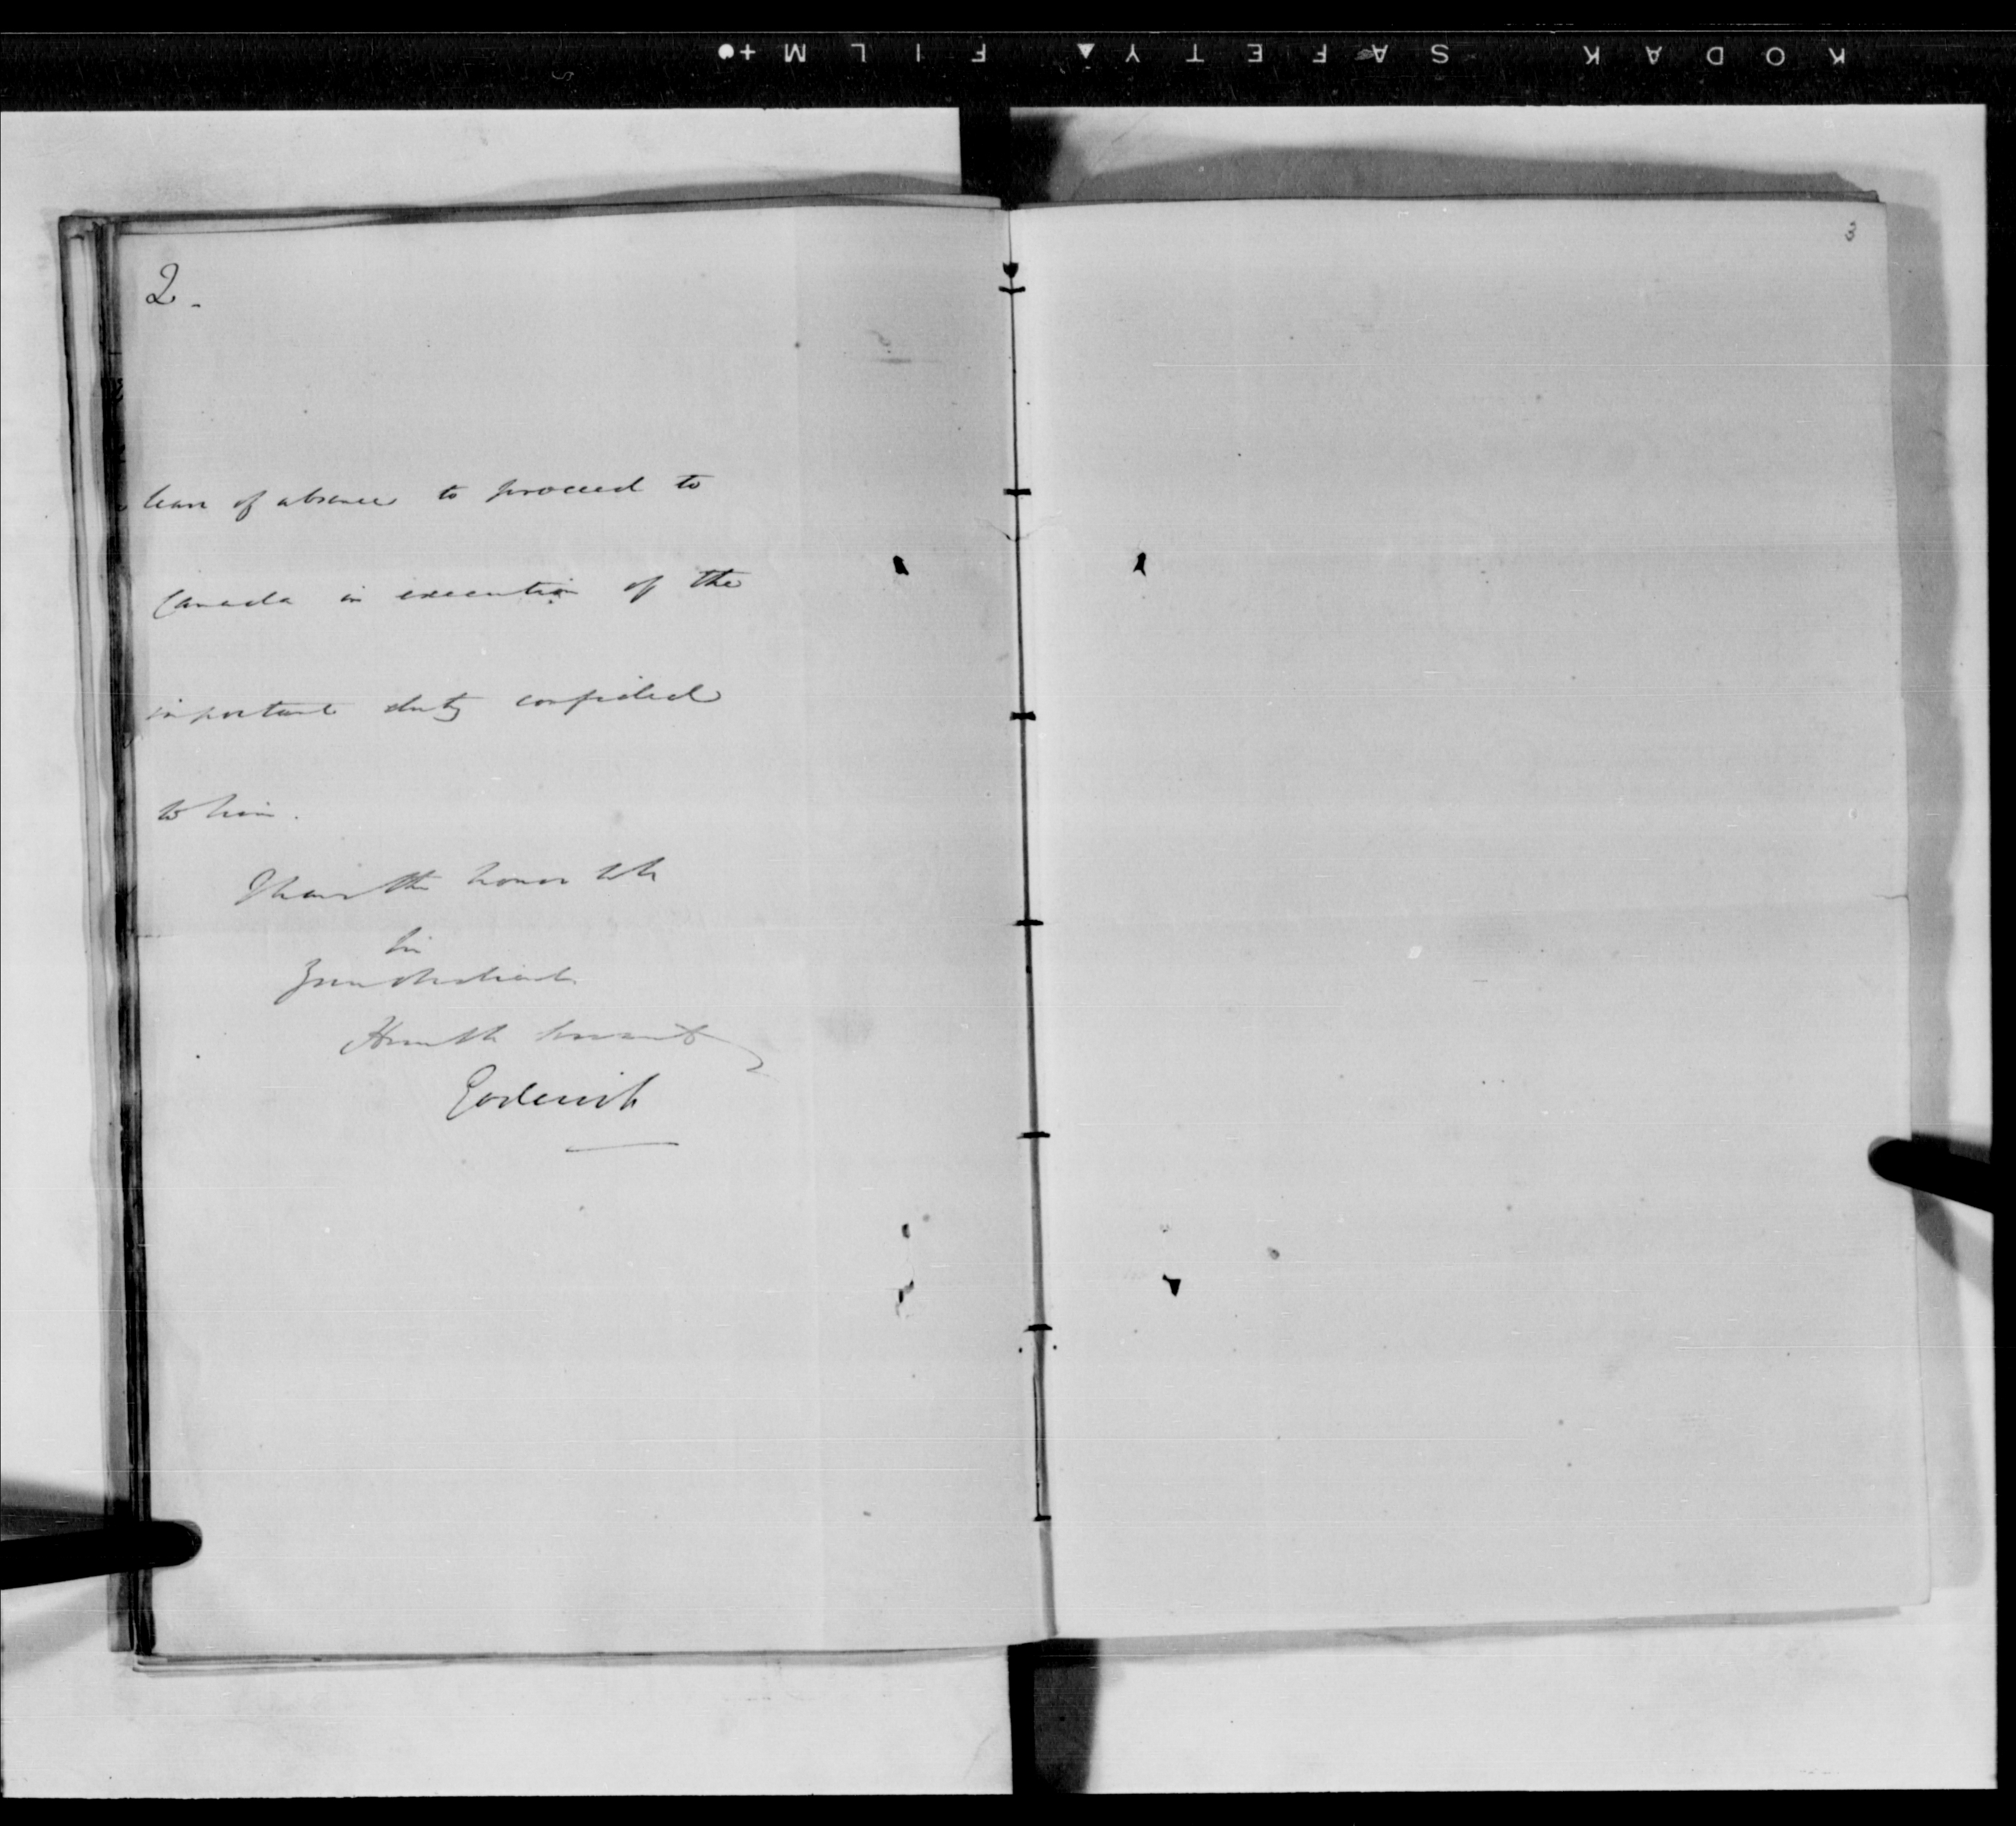 KODAK SAFETY▲ FILM+●
2.
3
leave of absence to proceed to
Canada in execution of the
important duty confided
to him.
I have the honor to be
Sir
Your obedient
Humble Servant
Goderich